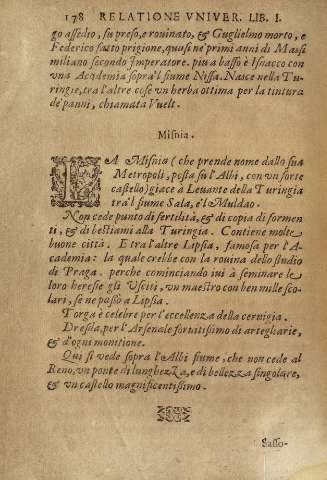 178 RELATIONE VNIVER. LIB. I.
go assedio, fu preso, e rouinato, & Guglielmo morto, e
Federico fatto prigione, quasi ne' primi anni di Massi
miliano secondo Imperatore. piu a basso è Isnacco con
vna Academia sopra'l fiume Nissa. Nasce nella Tu-
ringie, tra l'altre cose vn herba ottima per la tintura
de' panni, chiamata Vuelt.
Misnia.
LA Misnia (che prende nome dallo sua
Metropoli, posta su l'Albi, con vn forte
castello) giace à Leuante della Turingia
tra'l fiume Sala, e'l Muldao.
Non cede punto di fertilità, & di copia di formen
ti, & di bestiami alla Turingia. Contiene molte
buone città. E tra l'altre Lipsia, famosa per l'A-
cademia: la quale crebbe con la rouina dello studio
di Praga. perche cominciando iui à seminare le
loro heresie gli Vsiti, vn maestro con ben mille sco-
lari, se ne passò a Lipsia.
Torga è celebre per l'eccellenza della ceruigia.
Dresda, per l'Arsenale fortissimo di artegliarie,
& d'ogni monitione.
Qui si vede sopra l'Albi fiume, che non cede al
Reno, vn ponte di lunghezza, e di bellezza singolare,
& vn castello magnificentissimo.
Sasso-